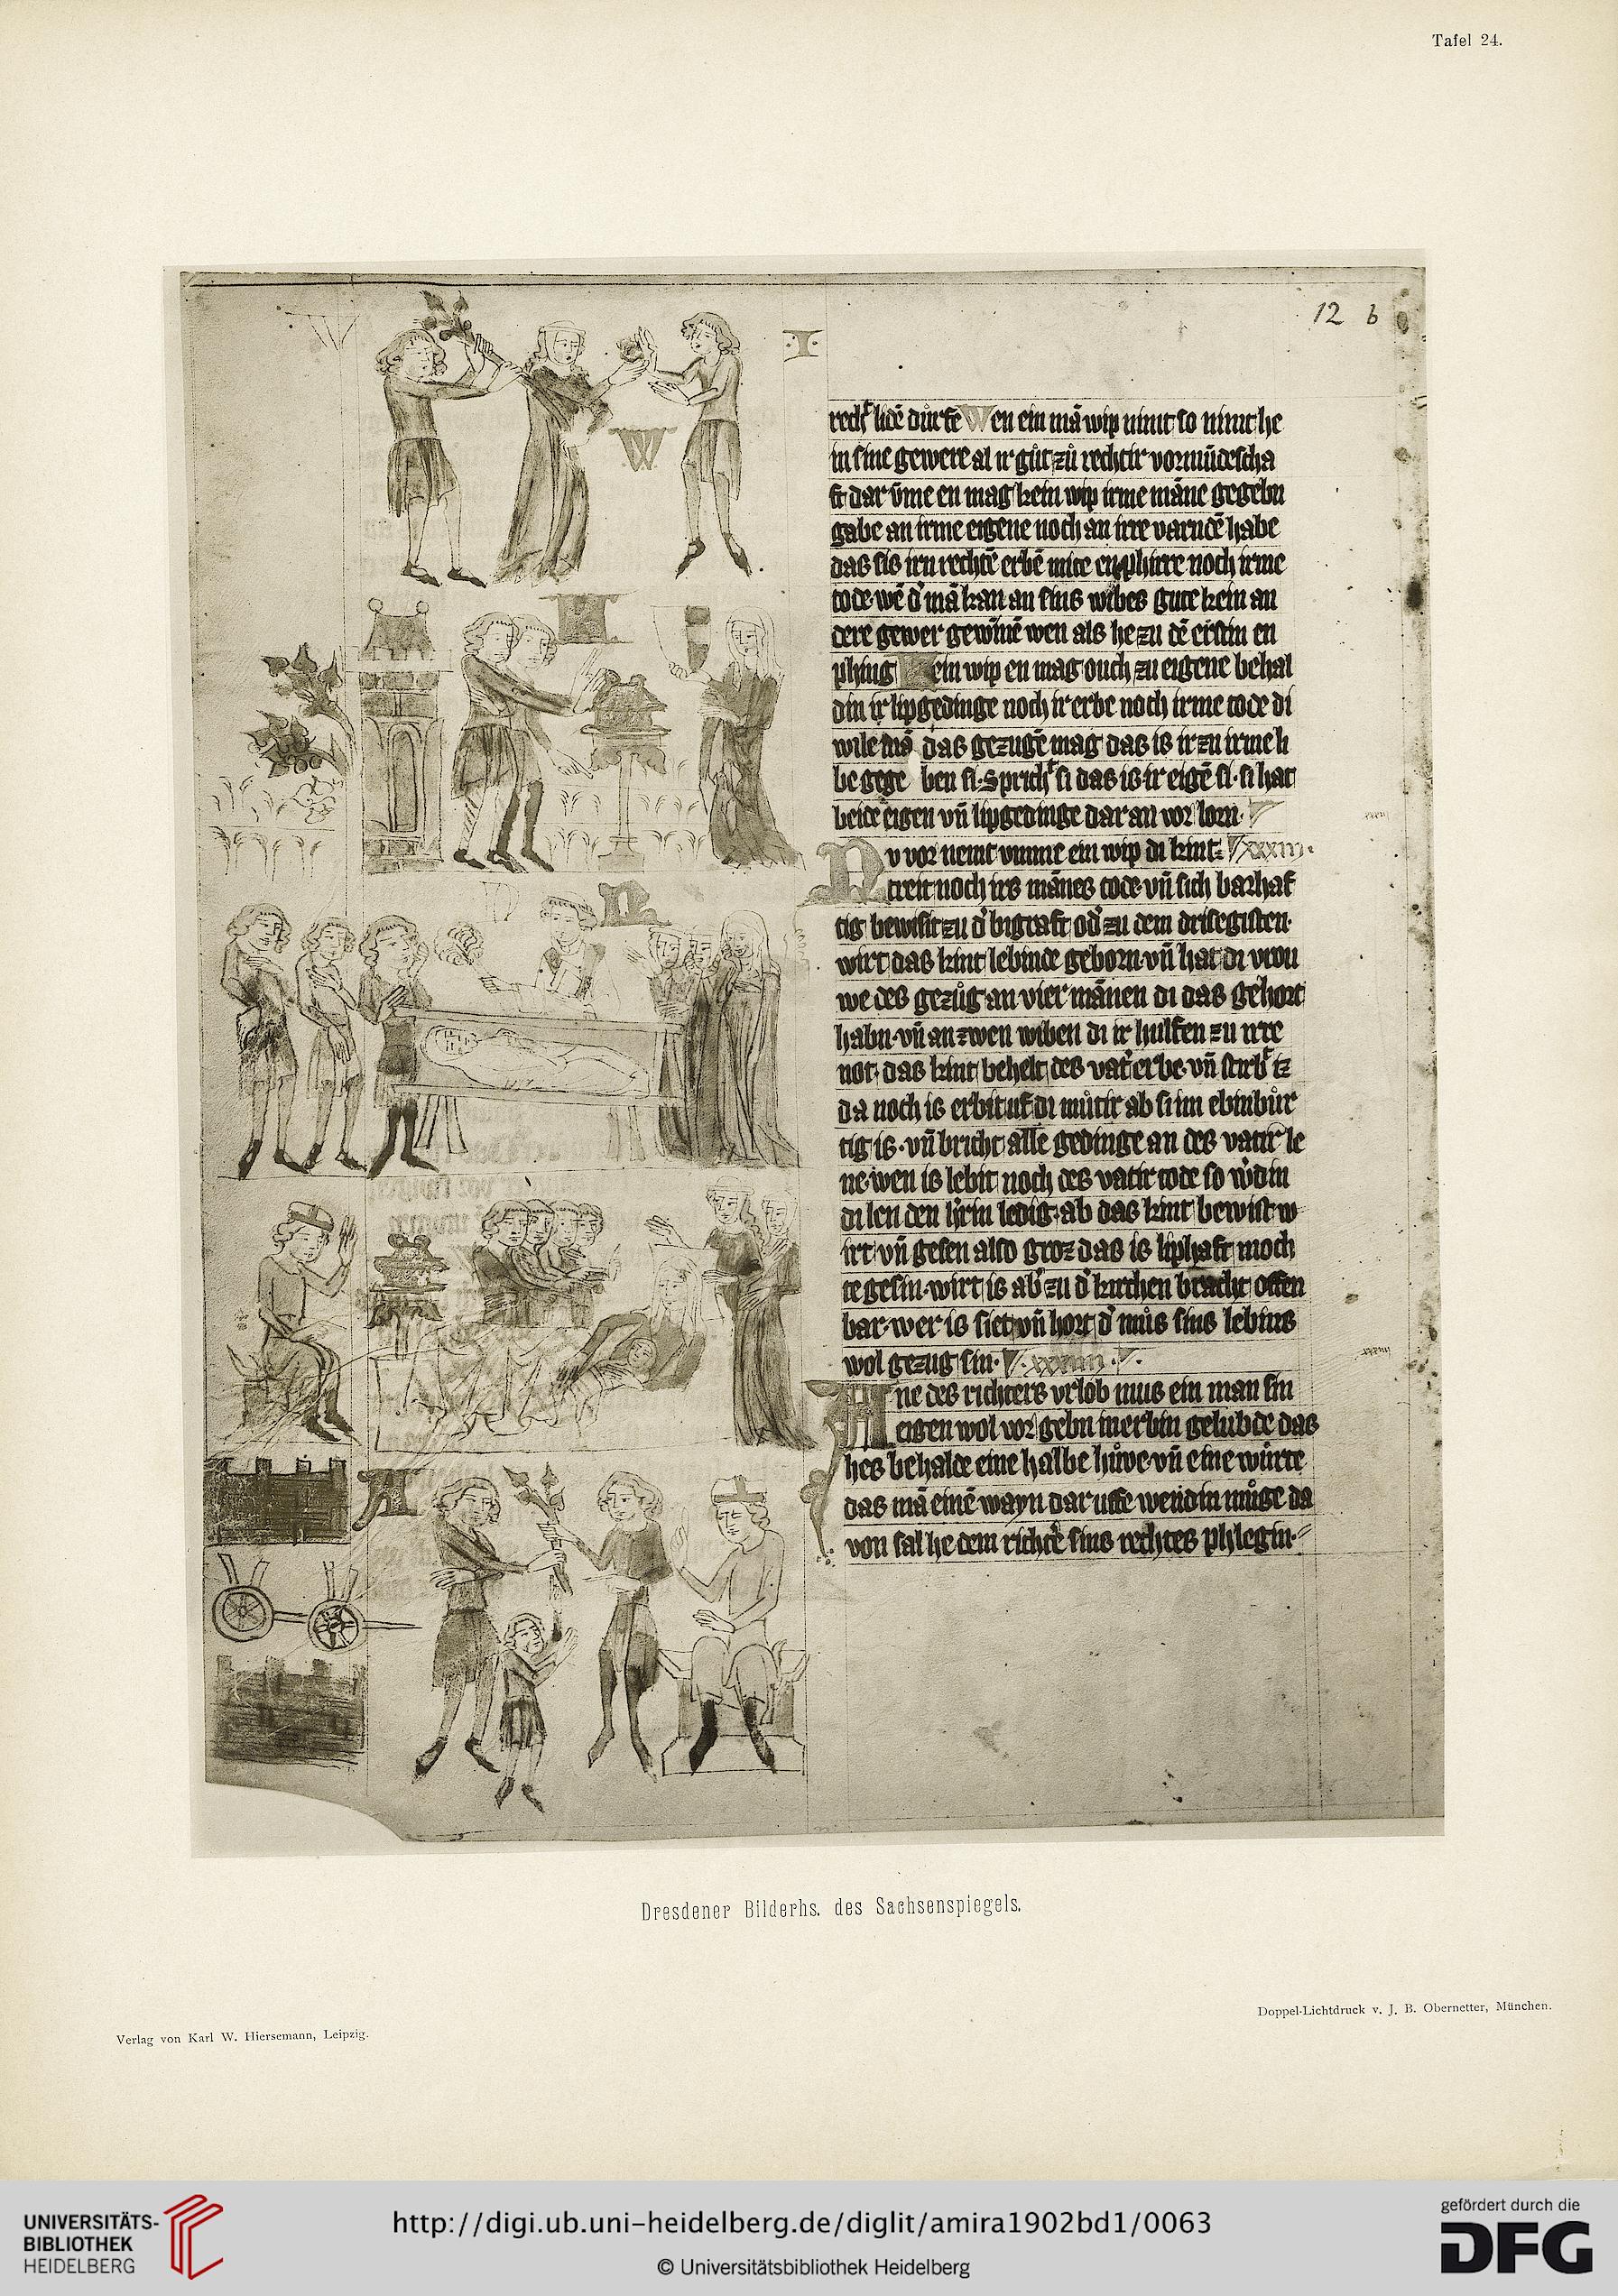 Tafel 24.
12 b
.I.
W
N
A
rechť lidē důrfe Wen ein mā wip nimt so nimt he
in sine gewere al ir gůt zů rechtir vormūdescha
ft dar ūme en mag kein wip irme māne gegebn
gabe an irme eigene noch an irre varndē habe
das sis irn rechtē erbē mite enphirre noch irme
tode· wē d' mā kan an sins wibes gute kein an
dere gewer gewīnē wen als he zu dē erstin en
phing Kein wip en mag ouch zu eigene behal
din ir lipgedinge noch ir erbe noch irme tode di
wile mā das gezugē mag das is ir zu irme li
be gege ben si· Sprichť si das is ir eigē si· si hat
beide eigen vn̄ lipgedinge dar an vor lorn·
Nv vor nemt vmme ein wip di kint· xxxiii·
treit noch irs mānes tode· vn̄ sich barhaf
tig bewisit zu d' bigraft od' zu dem drisegisten·
wirt das kint lebinde geborn vn̄ hat di vrou
we des gezůg an vier mānen di das gehort
habn· vn̄ an zwen wiben di ir hulfen zu irre
not· das kint behelt des vat'erbe· vn̄ stirbť iz
da noch is erbit uf di můtir ab si im ebinbůr
tig is· vn̄ bricht alle gedinge an des vatir le
ne· wen is lebit noch des vatir tode so w'din
di len den h'rin ledig· ab das kint bewist w
irt vn̄ gesen also groz das is liphaft moch
te gesin· wirt is ab' zu d' kirchen bracht offen
bar· wer is siet vn̄ hort d' můs sins lebins
wol gezug sin· xxxiiii·
Ane des richters vrlob mus ein man sin
eigen wol vor gebn in erbin gelubde das
hes behalde eine halbe hůwe· vn̄ eine wůrte
das mā einē wayn dar uffe wendin můge da
von sal he dem richt'e sins rechtes phlegin·
Dresdener Bilderhs. des Sachsenspiegels.
Doppel-Lichtdruck v. J. B. Obernetter, München.
Verlag von Karl W. Hiersemann, Leipzig.
UNIVERSITÄTS-
BIBLIOTHEK
HEIDELBERG
http://digi.ub.uni-heidelberg.de/diglit/amira1902bd1/0063
© Universitätsbibliothek Heidelberg
gefördert durch die
DFG